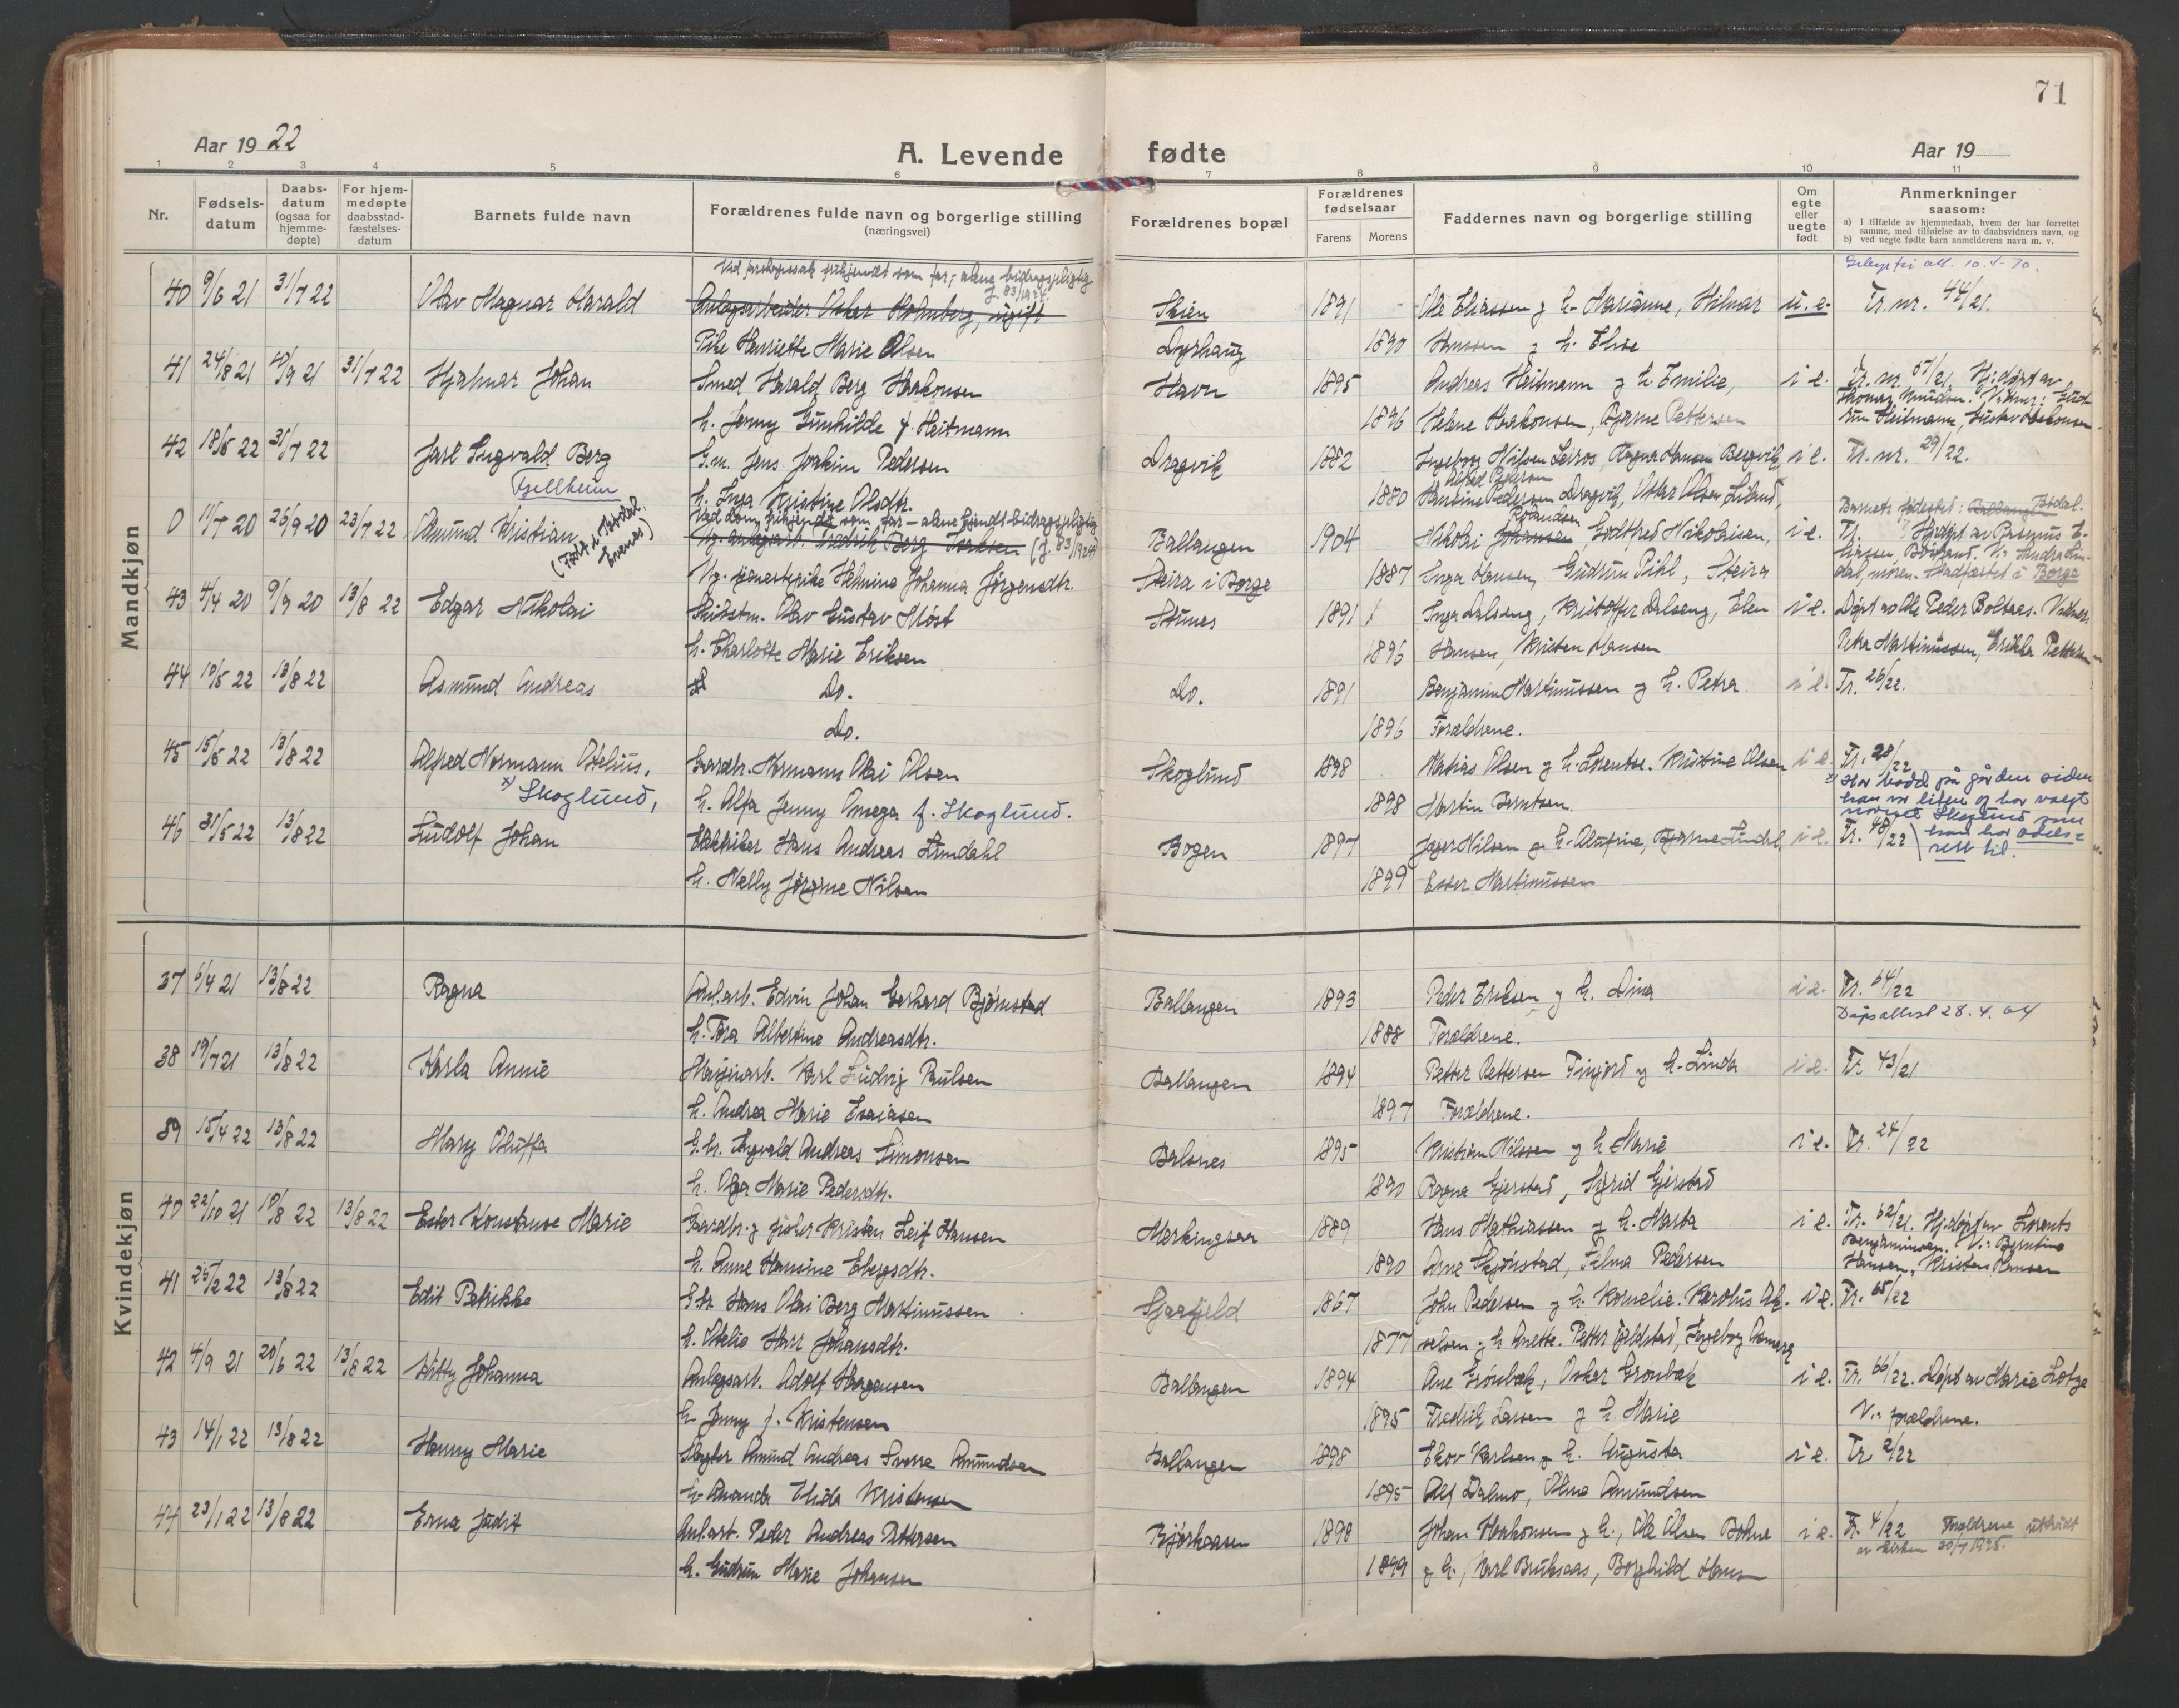 71
Aar 1922
A. Levende fødte
Aar 19
1 2 3 4 5 6 7 8 9 10 11
Nr.
Fødsels-datum
Daabs-datum (ogsaa for hjemme-døpte)
For hjem-medøpte daabsstad-fæstelses-datum
Barnets fulde navn
Forældrenes fulde navn og borgerlige stilling (næringsvei)
Forældrenes bopæl
Forældrenes fødselsaar
Farens Morens
Faddernes navn og borgerlige stilling
Om egte eller uegte født
Anmerkninger
saasom:
a) I tilfælde av hjemmedaab, hvem der har forrettet samme, med tilføielse av to daabsvidners navn, og
b) ved uegte fødte barn anmelderens navn m. v.
Mandkjøn
40 9/6 21 31/7 22 Olav Magnar Harald Anlagsarbeider Oskar Holmberg, ugift Skien 1891 Ole Eliassen g h. Marianne, Hilmar u.e. Tr. nr. 44/21.
Pike Henriette Marie Olsen Dyrhaug 1890 Hanssen g h. Elise
41 24/8 21 31/7 22 Hjalmar Johan Smed Harald Berg Haakonsen Havn 1895 Andreas Heitmann g h. Emilie, i e. Tr. nr.
h. Jenny Gunhilde f. Heitmann 1896 Helene Haakonsen, Bjarne Pettersen
42 31/7 22 Jarl Ingvald Berg G.m. Jens Joakim Pedersen Dragvik 1882 i e. Tr. nr. 29/22.
Fjellheim
h. Inga Kristine Olsdtr. 1880 Hansine Pedersen Dragvik, Oskar Olsen Liland,
0 11/7 20 26/9 20 23/7 22 Amund Kristian Ballangen 1904 Nikolai Johansen, Godtfred Nikolaisen, i e. Tr.
Helmine Johanna Jørgensdtr. Steira i Borge 1887 Inga Hansen, Gudrun Pihl, Steira
43 4/4 20 9/9 20 13/8 22 Edgar Nikolai Olav Gustav Høst Stunes 1891 Inga Dalseng, Kristoffer Dalseng, Elen i e. Døpt av Ole Peder Boltaas.
h. Charlotte Marie Eriksen 1896 Hansen, Kristen Hansen Petra Martinussen, Erikka Pettersen
44 10/5 22 13/8 22 Asmund Andreas Do. Do. 1891 Benjamin Martinussen g h. Petra i e. Tr. 26/22.
Do. 1896 Forældrene.
45 15/5 22 13/8 22 Alfred Normann Otelius, Gaardbr. Normann Olai Olsen Skoglund 1898 Matias Olsen g h. Kristine Olsen i e. Tr. 28/22
x) Skoglund, h. Alfa Jenny Omega f. Skoglund. 1898 Martin Berntsen.
x) Har bodd på gården siden
han var liten og har valgt
navnet Skoglund som
han har odels=
rett til.
46 31/5 22 13/8 22 Ludolf Johan Hans Andreas Lundahl Bogen 1897 i e. Tr. 48/22
h. Nelly Jørgine Nilsen 1899 Ester Martinussen
Kvindekjøn
37 6/4 21 13/8 22 Ragna Anl.arb. Edvin Johan Gerhard Bjørnstad Ballangen 1893 Peder Eriksen g h. Dina i e. Tr. 64/22
h. Tora Albertine Andreasdtr. 1888 Forældrene. Dåpsattest 28.4.64
38 19/7 21 13/8 22 Karla Annie Karl Ludvig Paulsen Ballangen 1894 Petter Pettersen g h. Linda i e. Tr. 43/21
h. Andrea Marie Esaiasen 1897 Forældrene.
39 15/4 22 13/8 22 Mary Oluffa G.br. Ingvald Andreas Simonsen Balsnes 1895 Kristian Nilsen g h Marie i e. Tr. 24/22
h. Olga Marie Pedersdtr. 1890 Ragna Gjerstad, Sigrid Gjerstad
40 22/10 21 10/8 22 13/8 22 Ester Konstanse Marie Gaardbr. g fisker Kristen Leif Hansen 1889 Hans Mathiassen g h. Marta i e. Tr. 62/21. Hj.døpt av Lorents
h. Anne Hansine Ebergsdtr. 1890 Arne Skjønstad, Selma Pedersen Hansen, Kristen Hansen
41 26/2 22 13/8 22 Edit Petrikke G.br. Hans Olai Berg Martinussen Sjaafjeld 1867 John Pedersen g h. Kornelie. Karolus i e. Tr. 65/22
h. Otelie Johansdtr. 1877 g h Anette. Petter Fjeldstad, Ingeborg
42 4/9 21 20/6 22 13/8 22 Kitty Johanna Anlagsarb. Adolf Ballangen 1894 Ane Grønbæk, Oskar Grønbæk i e. Tr. 66/22. Døpt av Marie Lotze
h. Jenny f. Kristensen 1895 Fredrik Larsen g h. Marie V.: forældrene.
43 14/1 22 13/8 22 Hanny Marie Amund Andreas Sverre Amundsen Ballangen 1898 Karlsen g h. Augusta i e. Tr 2/22
h. Amanda Elida Kristensen 1895 Alf Dalmo, Olma Amundsen
44 23/1 22 13/8 22 Erna Judit Anl.arb. Peder Andreas Pettersen Bjørkaasen 1898 Johan Haakonsen g h., Ole Olsen Bohne i e. Tr. 4/22 Forældrene utraadt av kirken 20/7 1925.
h. Gudrun Marie Johansen 1899 g h., Karl Bruksaas, Borghild Hansen